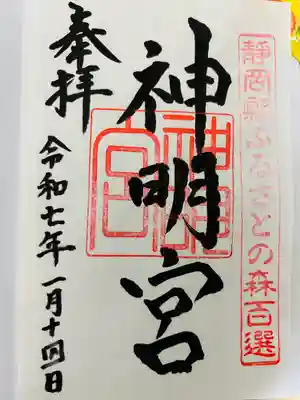 靜岡縣ふるさとの森百選
神明宮
神明宮
奉拝
令和七年一月十四日